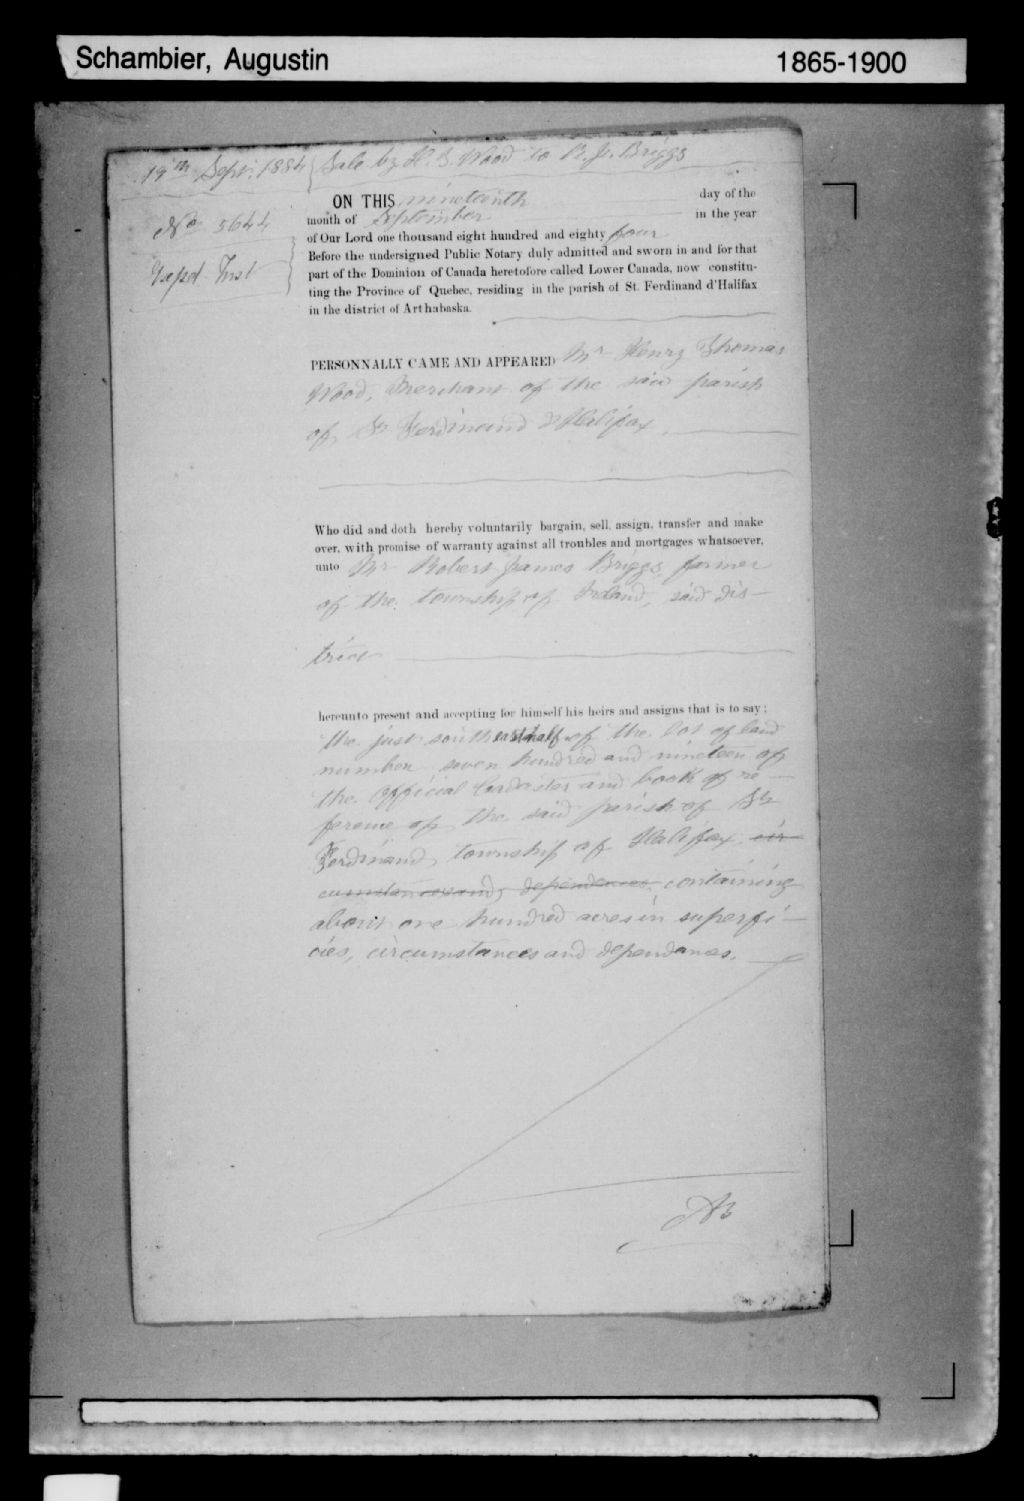 Schambier, Augustin 1865-1900
19th Sept. 1884 Sale by H. T. Wood to R. J. Briggs
No 5644
ON THIS nineteenth day of the
month of September in the year
of Our Lord one thousand eight hundred and eighty four
Before the undersigned Public Notary duly admitted and sworn in and for that
part of the Dominion of Canada heretofore called Lower Canada, now constitu-
ting the Province of Quebec, residing in the parish of St. Ferdinand d'Halifax
in the district of Arthabaska.
PERSONNALLY CAME AND APPEARED Mr Henry Thomas
Wood, Merchant of the said parish
of St Ferdinand d'Halifax,
Who did and doth hereby voluntarily bargain, sell, assign, transfer and make
over, with promise of warranty against all troubles and mortgages whatsoever,
unto Mr Robert James Briggs farmer
of the township of Ireland, said dis-
trict
hereunto present and accepting for himself his heirs and assigns that is to say:
the just south east half of the lot of land
number seven hundred and nineteen of
the official Cadaster and book of re-
ference of the said parish of St
Ferdinand, township of Halifax, cir
cumstances and dependences, containing
about one hundred acres in superfi-
cies, circumstances and dependances.
AB